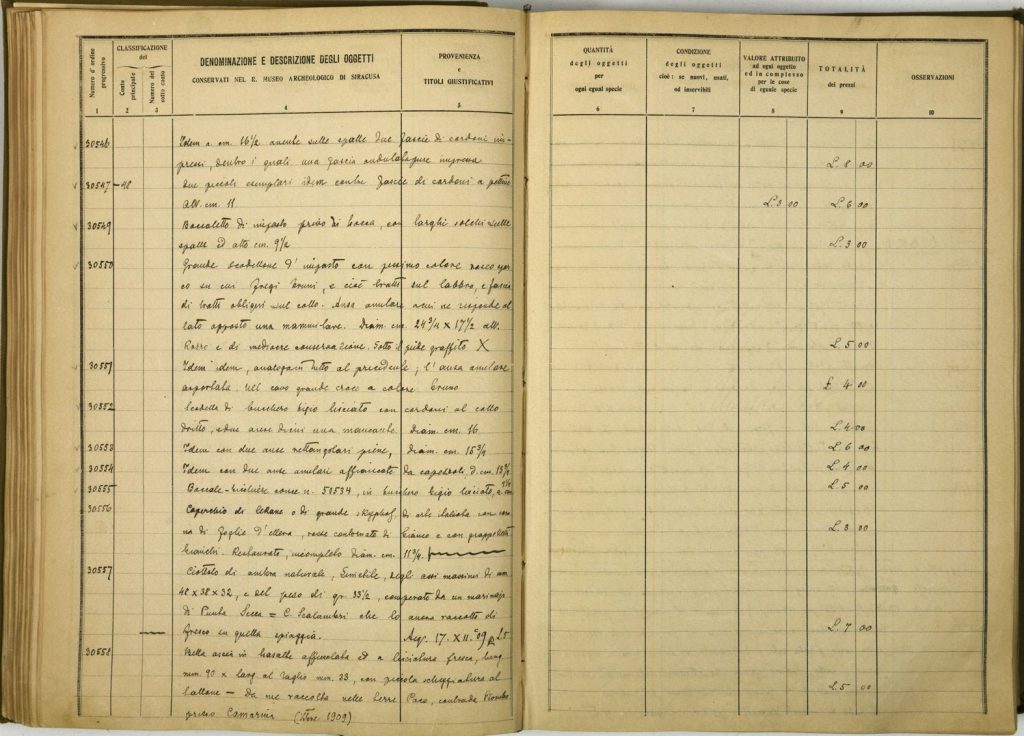 Numero d'ordine progressivo
CLASSIFICAZIONE del
Conto principale
Numero del sotto conto
DENOMINAZIONE E DESCRIZIONE DEGLI OGGETTI
CONSERVATI NEL R. MUSEO ARCHEOLOGICO DI SIRACUSA
PROVENIENZA
e
TITOLI GIUSTIFICATIVI
QUANTITÀ
degli oggetti
per
ogni egual specie
CONDIZIONE
degli oggetti
cioè: se nuovi, usati,
od inservibili
VALORE ATTRIBUITO
ad ogni oggetto
ed in complesso
per le cose
di eguale specie
TOTALITÀ
dei prezzi
OSSERVAZIONI
1 2 3 4 5 6 7 8 9 10
30546 Idem a. cm. 16½ avente sulle spalle due fascie di cordoni im-
pressi, dentro i quali, una fascia ondulata pure impressa L. 8 00
30547 - 48 due piccoli esemplari idem contre fascie di cordoni a pettine
Alt. cm. 11. L. 3 00 L. 6 00
30549 Boccaletto di impasto privo di bocca, con larghi solchi sulle
spalle ed alto cm. 9½ L. 3 00
30550 Grande scodellone d'impasto con pessimo colore rosco
co su cui fregi bruni, e cioè tratti sul labbro, e fascia
di tratti obliqui sul collo. Ansa anulare cui ne risponde al
lato opposto una mammillare. Diam. cm. 24¾ x 17½ alt.
Rozzo e di mediocre conservazione. Sotto il piede graffito X L. 5 00
30551 Idem idem, analogam tutto al precedente; l'ansa anulare
asportata. Nel cavo grande croce a colore bruno £ 4 00
30552 Scodella di bucchero bigio lisciato con cordoni al collo
dritto, e due anse di cui una mancante. Diam. cm. 16 L. 4 00
30553 Idem con due anse rettangolari piene, diam. cm. 15¾ L. 6 00
30554 Idem con due anse anulari affiancate da capezzoli, d. cm. 13¾ L. 4 00
30555 Boccale-bicchiere come n. 30534, in bucchero bigio lisciato, a. cm. L. 5 00
30556 Coperchio di lekane o di grande skyphos, di arte italiota con coro
na di foglie d'ellera, rosse contornate di bianco e con grappoletti
bianchi. Restaurato, incompleto diam. cm. 11¾. L. 3 00
30557 Ciottolo di ambra naturale, simebile, negli assi massimi di mm.
48 x 38 x 32, e del peso di gr. 33½, comperato da un marinajo
di Punta Secca = C. Scalambri che lo aveva raccolto di
fresco su quella spiaggia. Acq. 17. XII. 09 p. L5 L. 7 00
30558 Bella ascia in basalte affusolata ed a lisciatura fresca, lung.
mm. 90 x larg. al taglio mm. 33, con piccola scheggiatura al
tallone - Da me raccolta nelle terre Pace, contrada
presso Camarina (Xbre 1909) L. 5 00